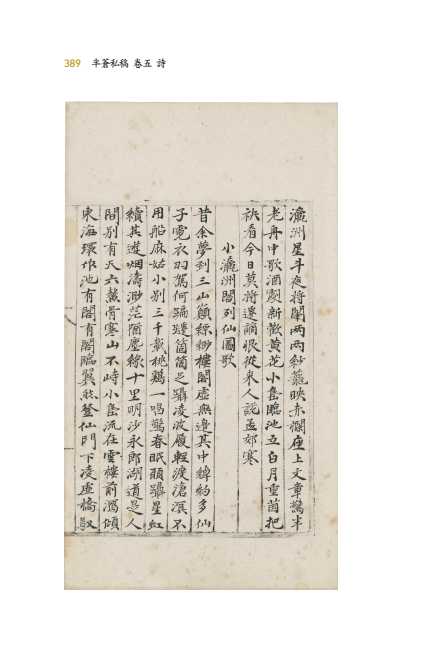 389 半蒼私稿 卷五 詩
瀛洲星斗夜將闌兩兩紗籠映赤欄座上文章驚半
老舟中歌酒剩新歡黃花小島臨池立白月重茵把
袂看今日莫將遲謫恨從來人說孟郊寒
小瀛洲閣列仙圖歌
昔余夢到三山巔縹緲樓閣虛無邊其中綽約多仙
子霓衣羽駕何蹁躚箇箇足躡凌波履輕渡滄溟不
用船麻姑小別三千載桃鷄一唱驚春眠頭躡星虹
續其遊烟濤渺茫猶塵緣十里明沙永郎湖道是人
間別有天六鰲骨寒山不峙小島流在雪樓前瀉傾
東海環作池有閣有閣臨翼然登仙門下凌虛橋